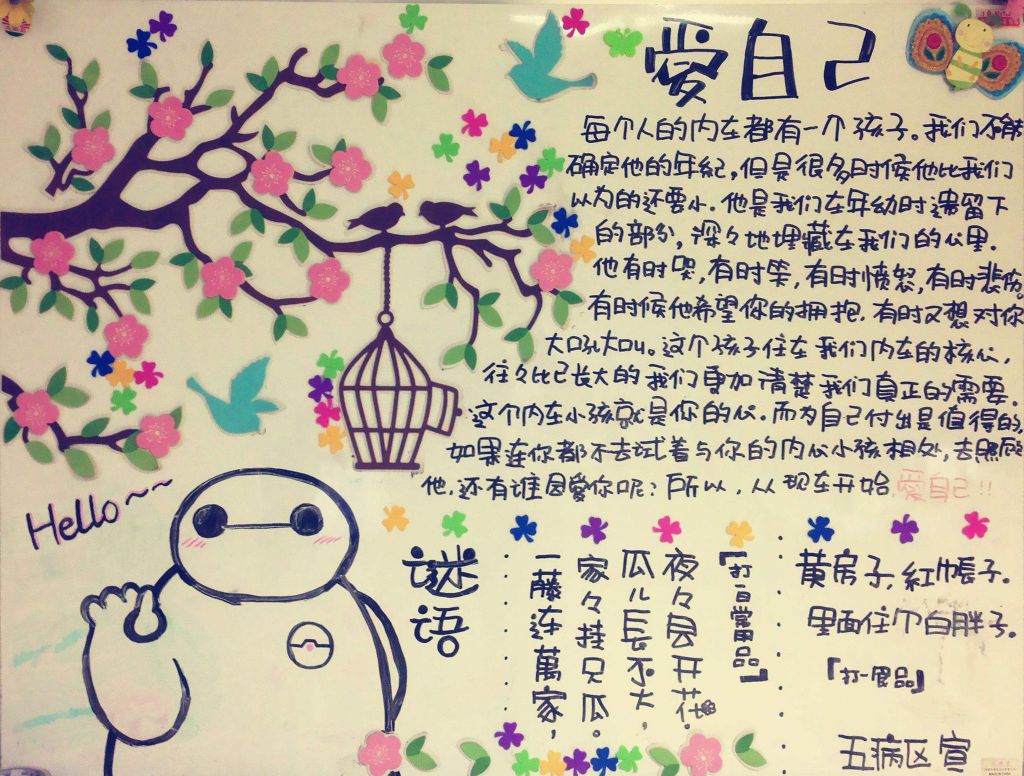 愛自己
每个人的内在都有一个孩子。我们不能
确定他的年紀,但是很多时候他比我们
以为的还要小.他是我们在年幼时遗留下
的部分,深々地埋藏在我们的心里.
他有时哭,有时笑,有时愤怒,有时悲伤。
有时候他希望你的拥抱.有时又想对你
大吼大叫。这个孩子住在我们内在的核心,
往々比已长大的我们更加清楚我们真正的需要.
这个内在小孩就是你的心.而为自己付出是值得的,
如果连你都不去试着与你的内心小孩相处,去照顾
他.还有谁因愛你呢?所以.从现在开始愛自己!!
Hello~~
谜语
一藤连萬家,
家々挂只瓜。
瓜儿長不大,
夜々皆开花。
『打一日常用品』
黄房子,紅帳子.
里面住个白胖子。
『打一食品』
五病区宣